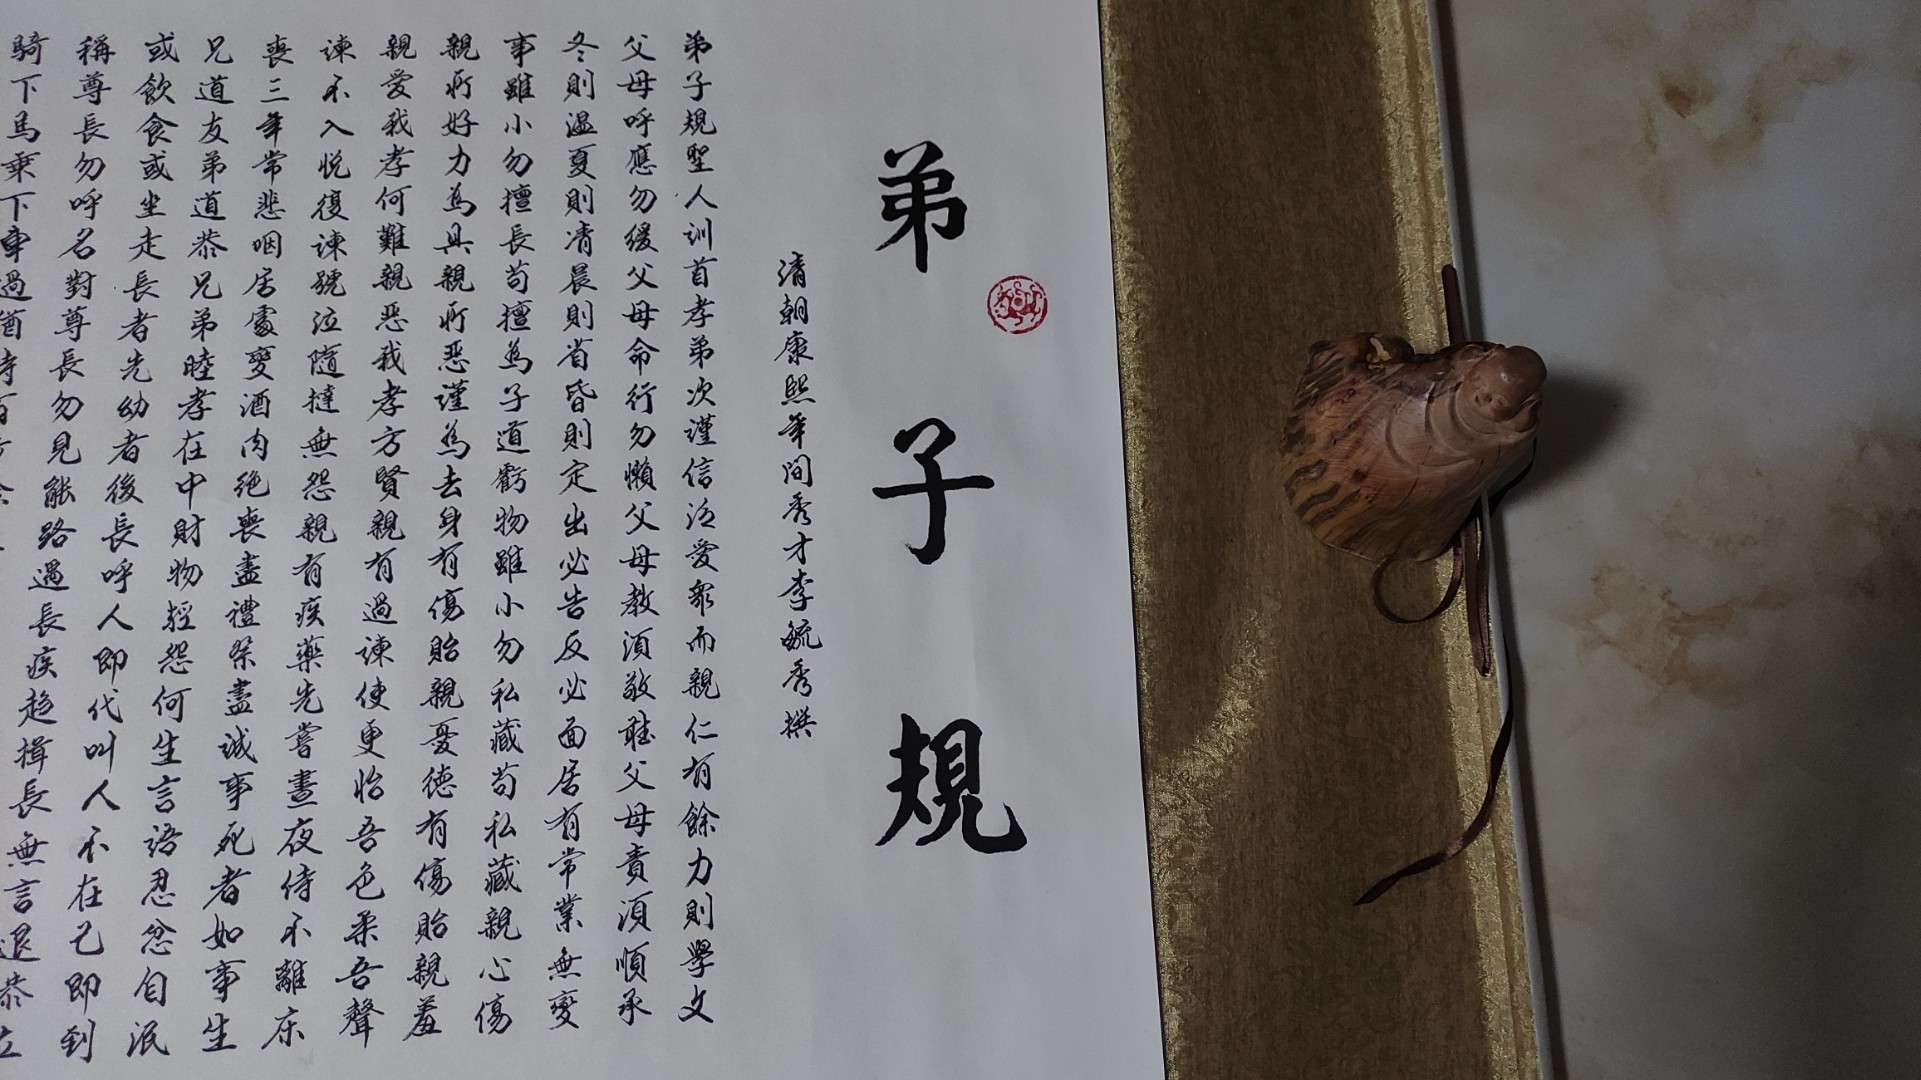 弟子規
清朝康熙年间秀才李毓秀撰
弟子規聖人训首孝弟次謹信泛愛眾而親仁有餘力則學文
父母呼應勿緩父母命行勿懶父母教須敬聽父母責須順承
冬則溫夏則凊晨則省昏則定出必告反必面居有常業無變
事雖小勿擅長苟擅為子道虧物雖小勿私藏苟私藏親心傷
親所好力為具親所惡謹為去身有傷貽親憂德有傷貽親羞
親愛我孝何難親惡我孝方賢親有過諫使更怡吾色柔吾聲
諫不入悅復諫號泣隨撻無怨親有疾藥先嘗晝夜侍不離床
喪三年常悲咽居處變酒肉絕喪盡禮祭盡誠事死者如事生
兄道友弟道恭兄弟睦孝在中財物輕怨何生言語忍忿自泯
或飲食或坐走長者先幼者後長呼人即代叫人不在己即到
稱尊長勿呼名對尊長勿見能路遇長疾趨揖長無言退恭立
騎下馬乘下車過猶待百步餘